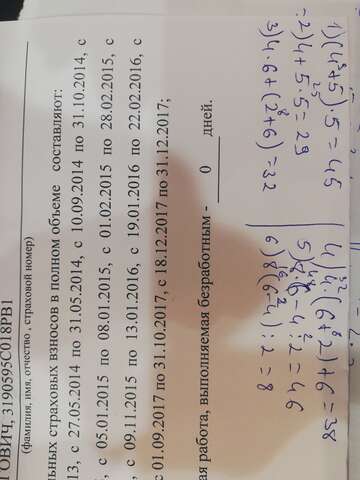 ТОВИЧ, 3190595C018PB1
(фамилия, имя, отчество, страховой номер)
льных страховых взносов в полном объеме составляют:
13, с 27.05.2014 по 31.05.2014, с 10.09.2014 по 31.10.2014, с
, с 05.01.2015 по 08.01.2015, с 01.02.2015 по 28.02.2015, с
, с 09.11.2015 по 13.01.2016, с 19.01.2016 по 22.02.2016, с
с 01.09.2017 по 31.10.2017, с 18.12.2017 по 31.12.2017,
ая работа, выполняемая безработным - 0 дней.
1)(4+5)·5=45
2)4+5·5=29
3)4·6+(2+6)=32
4)4·(6+2)+6=38
5)8·6-4:2=46
6)8(6-4):2=8